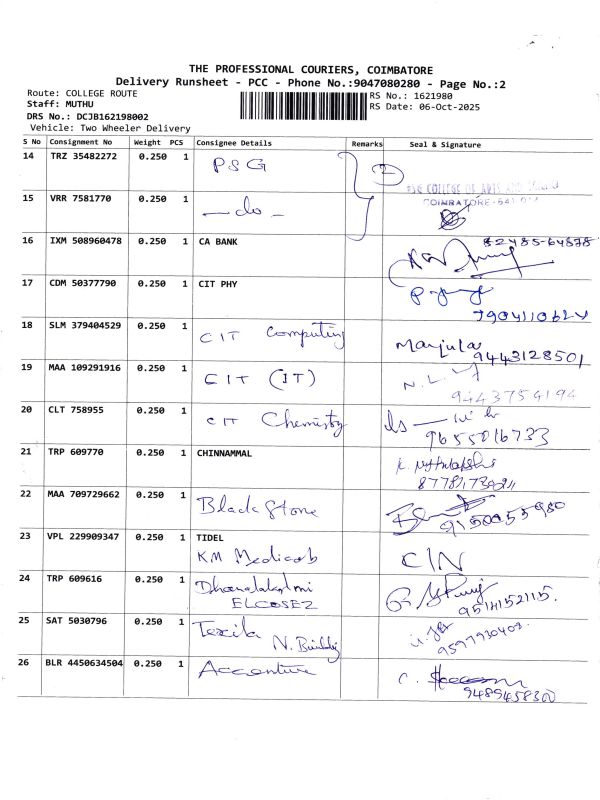 THE PROFESSIONAL COURIERS, COIMBATORE
Delivery Runsheet - PCC - Phone No.:9047080280 - Page No.:2
Route: COLLEGE ROUTE
RS No.: 1621980
Staff: MUTHU
RS Date: 06-Oct-2025
DRS No.: DCJB162198002
Vehicle: Two Wheeler Delivery
S No Consignment No Weight PCS Consignee Details Remarks Seal & Signature
14 TRZ 35482272 0.250 1 PSG 2
PSG COLLEGE OF ARTS AND
COIMBATORE-641
15 VRR 7581770 0.250 1 — do —
16 IXM 508960478 0.250 1 CA BANK 82485-64878
17 CDM 50377790 0.250 1 CIT PHY
18 SLM 379404529 0.250 1 CIT Computing Manjula
9443128501
19 MAA 109291916 0.250 1 CIT (IT)
9443754194
20 CLT 758955 0.250 1 CIT Chemistry
9655016733
21 TRP 609770 0.250 1 CHINNAMMAL
22 MAA 709729662 0.250 1 Black Stone
23 VPL 229909347 0.250 1 TIDEL
KM Medicab
24 TRP 609616 0.250 1 Dhanalakshmi
9514152115.
25 SAT 5030796 0.250 1 Texila
26 BLR 4450634504 0.250 1 Accenture